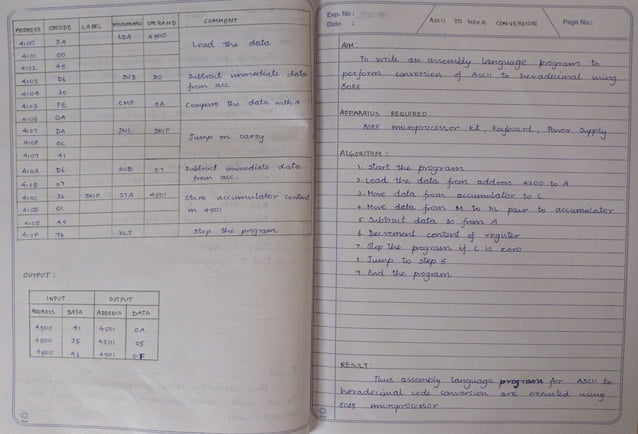 ADDRESS OPCODE LABEL MNEMONICS OPERAND COMMENT
4100 3A LDA 4500 Load the data
4101 00
4102 45
4103 D6 SUB 30 Subtract immediate data
from acc.
4104 30
4105 FE CMP 0A Compare the data with A
4106 0A
4107 DA JNC SKIP Jump on carry
4108 0C
4109 41
410A D6 SUB 07 Subtract immediate data
from acc.
410B 07
410C 32 SKIP STA 4501 Store accumulator content
in 4501
410D 01
410E 45
410F 76 HLT Stop the program
OUTPUT :
INPUT OUTPUT
ADDRESS DATA ADDRESS DATA
4500 41 4501 0A
4500 35 4501 05
4500 46 4501 0F
Exp. No :
Date :
ASCII TO HEXA CONVERSION
Page No.:
AIM :
To write an assembly language program to
perform conversion of ASCII to hexadecimal using
8085
APPARATUS REQUIRED
8085 microprocessor kit, Keyboard, Power supply
ALGORITHM :
1. Start the program
2. Load the data from address 4200 to A
3. Move data from accumulator to C
4. Move data from M to HL pair to accumulator
5. Subtract data 30 from A
6. Decrement content of register
7. Stop the program if C is zero
8. Jump to step 5
9. End the program
RESULT :
Thus assembly language program for ASCII to
hexadecimal code conversion are executed using
8085 microprocessor.